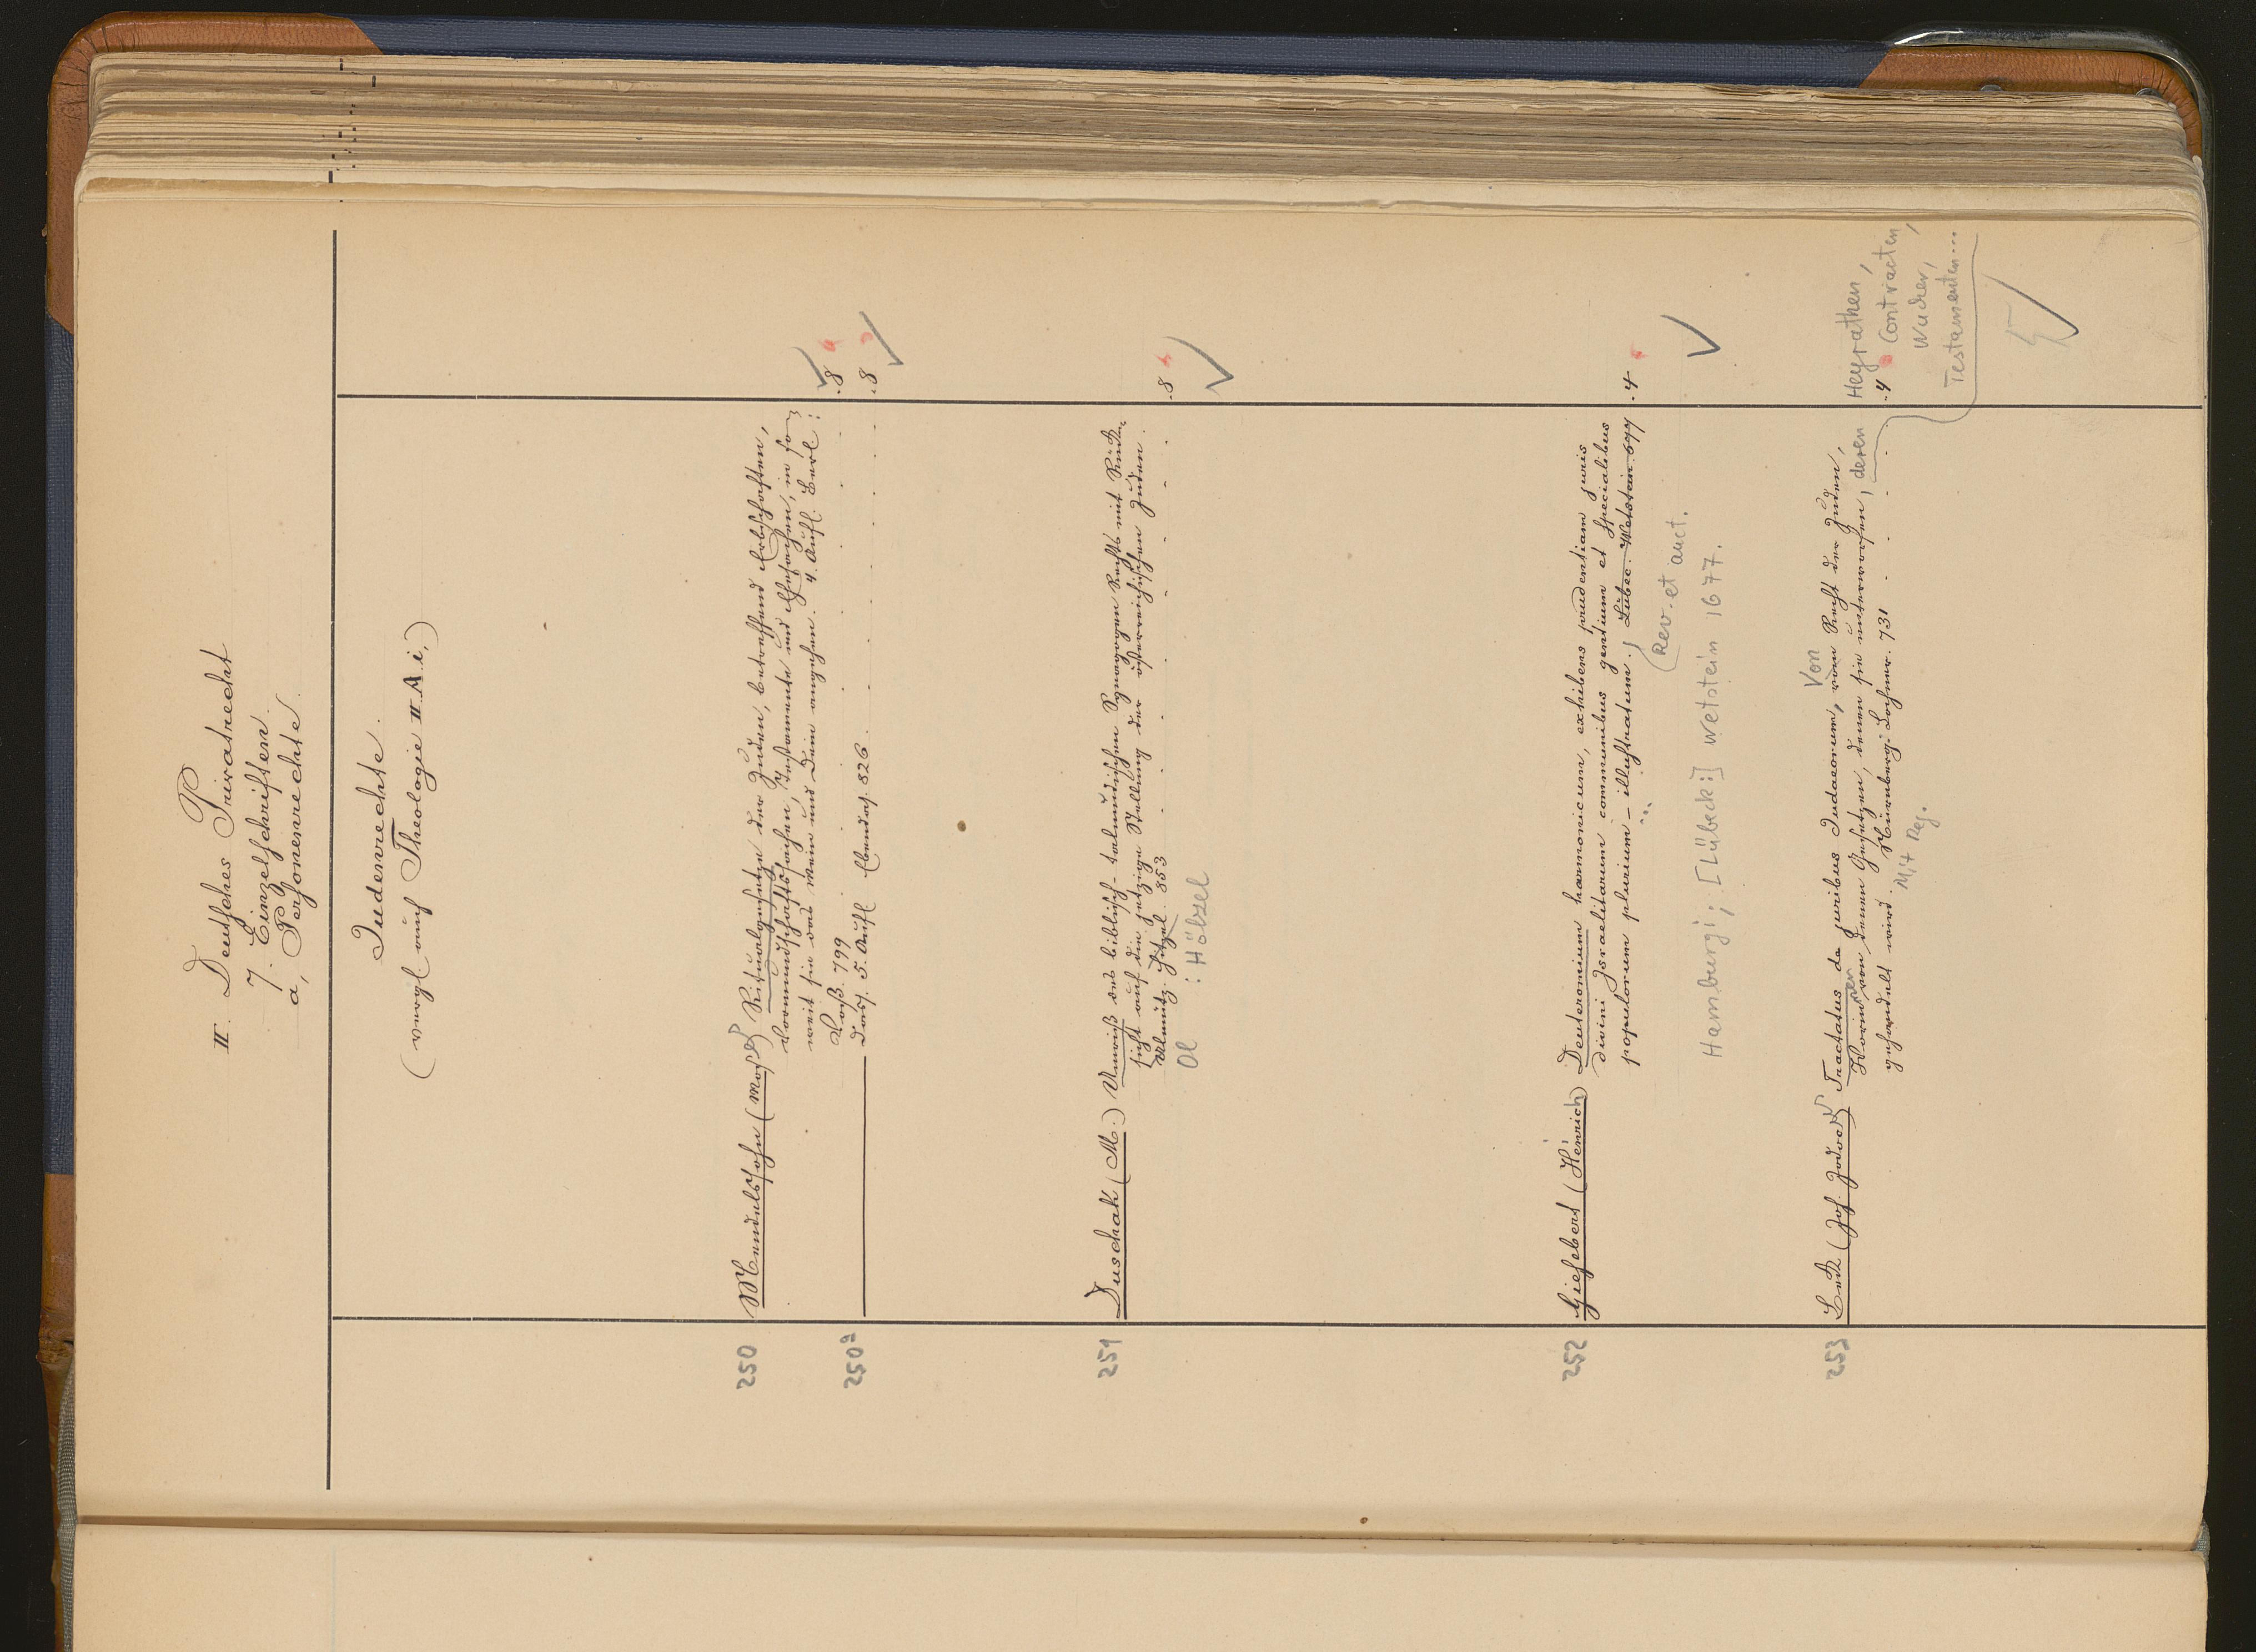 II. Deutsches Privatrecht
7. Einzelschriften.
a, Personenrechte.
Judenrechte.
(vergl auch Theologie II A.i,)
250 Mendelssohn (Moses) Ritualgesetze der Juden, betreffend Erbschaften,
Vormundschaftssachen, Testamente und Ehesachen, in so
weit sie das Mein und Dein angehen. 4. Aufl. Berl:
Voß. 799 .8
250a Dass. 5. Aufl Ebendas. 826. .8
251 Duschak (M.) Umriß des biblisch-talmudischen Synagogen Rechts mit Rück-
sicht auf die jetzige Stellung der österreichischen Juden.
Olmütz. Hözel. 853 .8
Ol : Hölzel
252 Giesebert (Heinrich) Deuteronomium harmonicum, exhibens prudentiam juris
divini Israelitarum communibus gentium et specialibus
populorum plurium – illustratum., Lübec. Wetstein 677 .4
Rev. et auct.
Hamburgi; [Lübeck:] Wetstein 1677.
Von
253 Beck (Jos. Jodoc) Tractatus de juribus Judaeorum, vom Recht der Juden,
Worinnen von denen Gesetzen, denen sie unterworfen, deren
Heyrathen,
Contracten,
Wucher,
Testamenten...
gehandelt wird. Nürnberg: Lochner. 731 .4
Mit Reg.